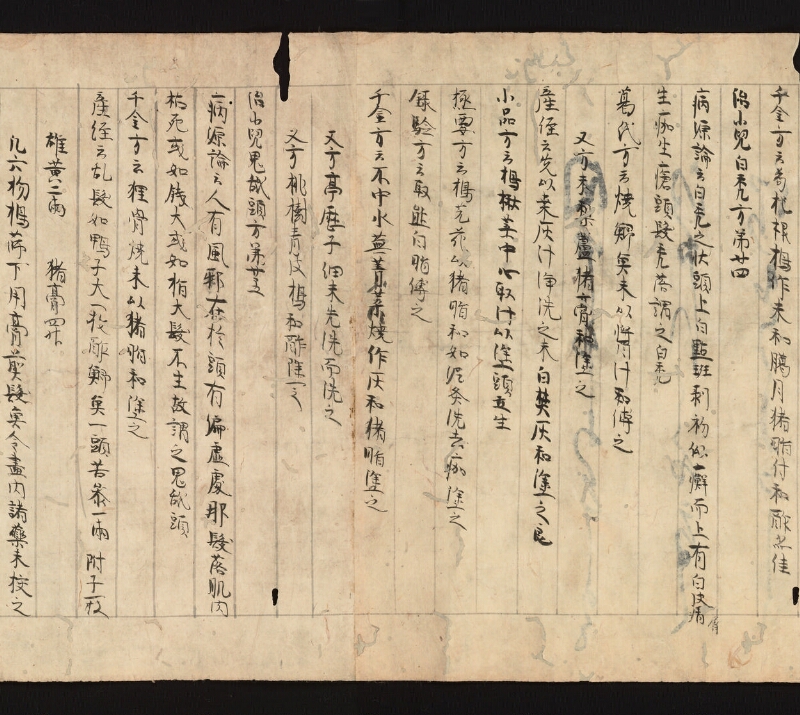 千金方云苟杞根搗作末和臘月猪脂付和酢亦佳
治小兒白禿方第廿四
病源論云白禿之狀頭上白點斑剥初似癬而上有白皮
生痂生瘡頭髮禿落謂之白禿
葛氏方云燒鯽魚末以醬汁和傅之
又方末藜蘆猪膏和塗之
產經云先以桒灰汁浄洗之末白礬灰和塗之良
小品方云搗楸葉中心取汁以塗頭立生
極要方云桃花以猪脂和如泥桒洗去痂塗之
錄驗方云取韭白脂傅之
千金方云不中水蕪菁葉燒作灰和猪脂塗之
又方亭歷子細末先洗而洗之
又方桃樹青皮搗和酢塗之
治小兒鬼䑛頭方第廿五
病源論云人有風邪在於頭有偏虛處那髮落肌肉
枯死或如錢大或如指大髮不生故謂之鬼䑛頭
千金方云狸骨燒末以猪脂和塗之
產經云乱髮如鴨子大一枚 鯽魚一頭 苦參一兩 附子一枚
雄黃二兩 猪膏四升
凡六物搗篩下用膏煎髮魚令盡內諸藥末挍之